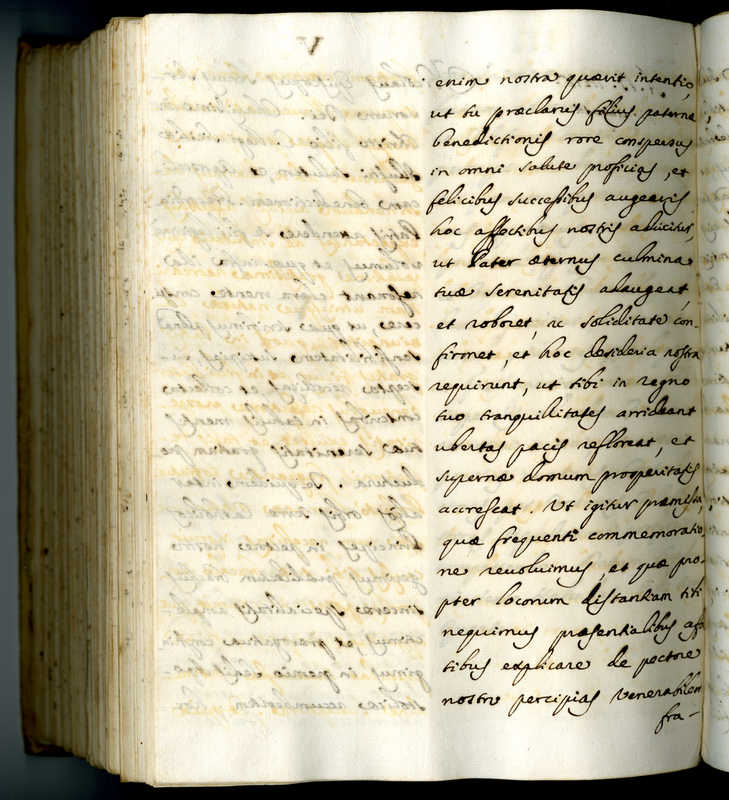 enim nostra quærit intentio,
ut tu præclarus filius paterna
benedictionis rore conspersus
in omni salute proficias, et
felicibus successibus augearis,
hoc affectibus nostris adiicitur,
ut Pater æternus culmina
tuæ serenitatis adaugeat,
et roboret, ac soliditate con-
firmet, et hoc desideria nostra
requirunt, ut tibi in regno
tuo tranquillitates arrideant
ubertas pacis refloreat, et
supernæ domum prosperitatis
accrescat. Ut igitur præmissa,
quæ frequenti commemoratio-
ne reuoluimus, et quæ pro-
pter locorum distantiam tibi
nequimus præsentialibus aff
tibus explicare de pectore
nostro percipias Venerabilem
fra-